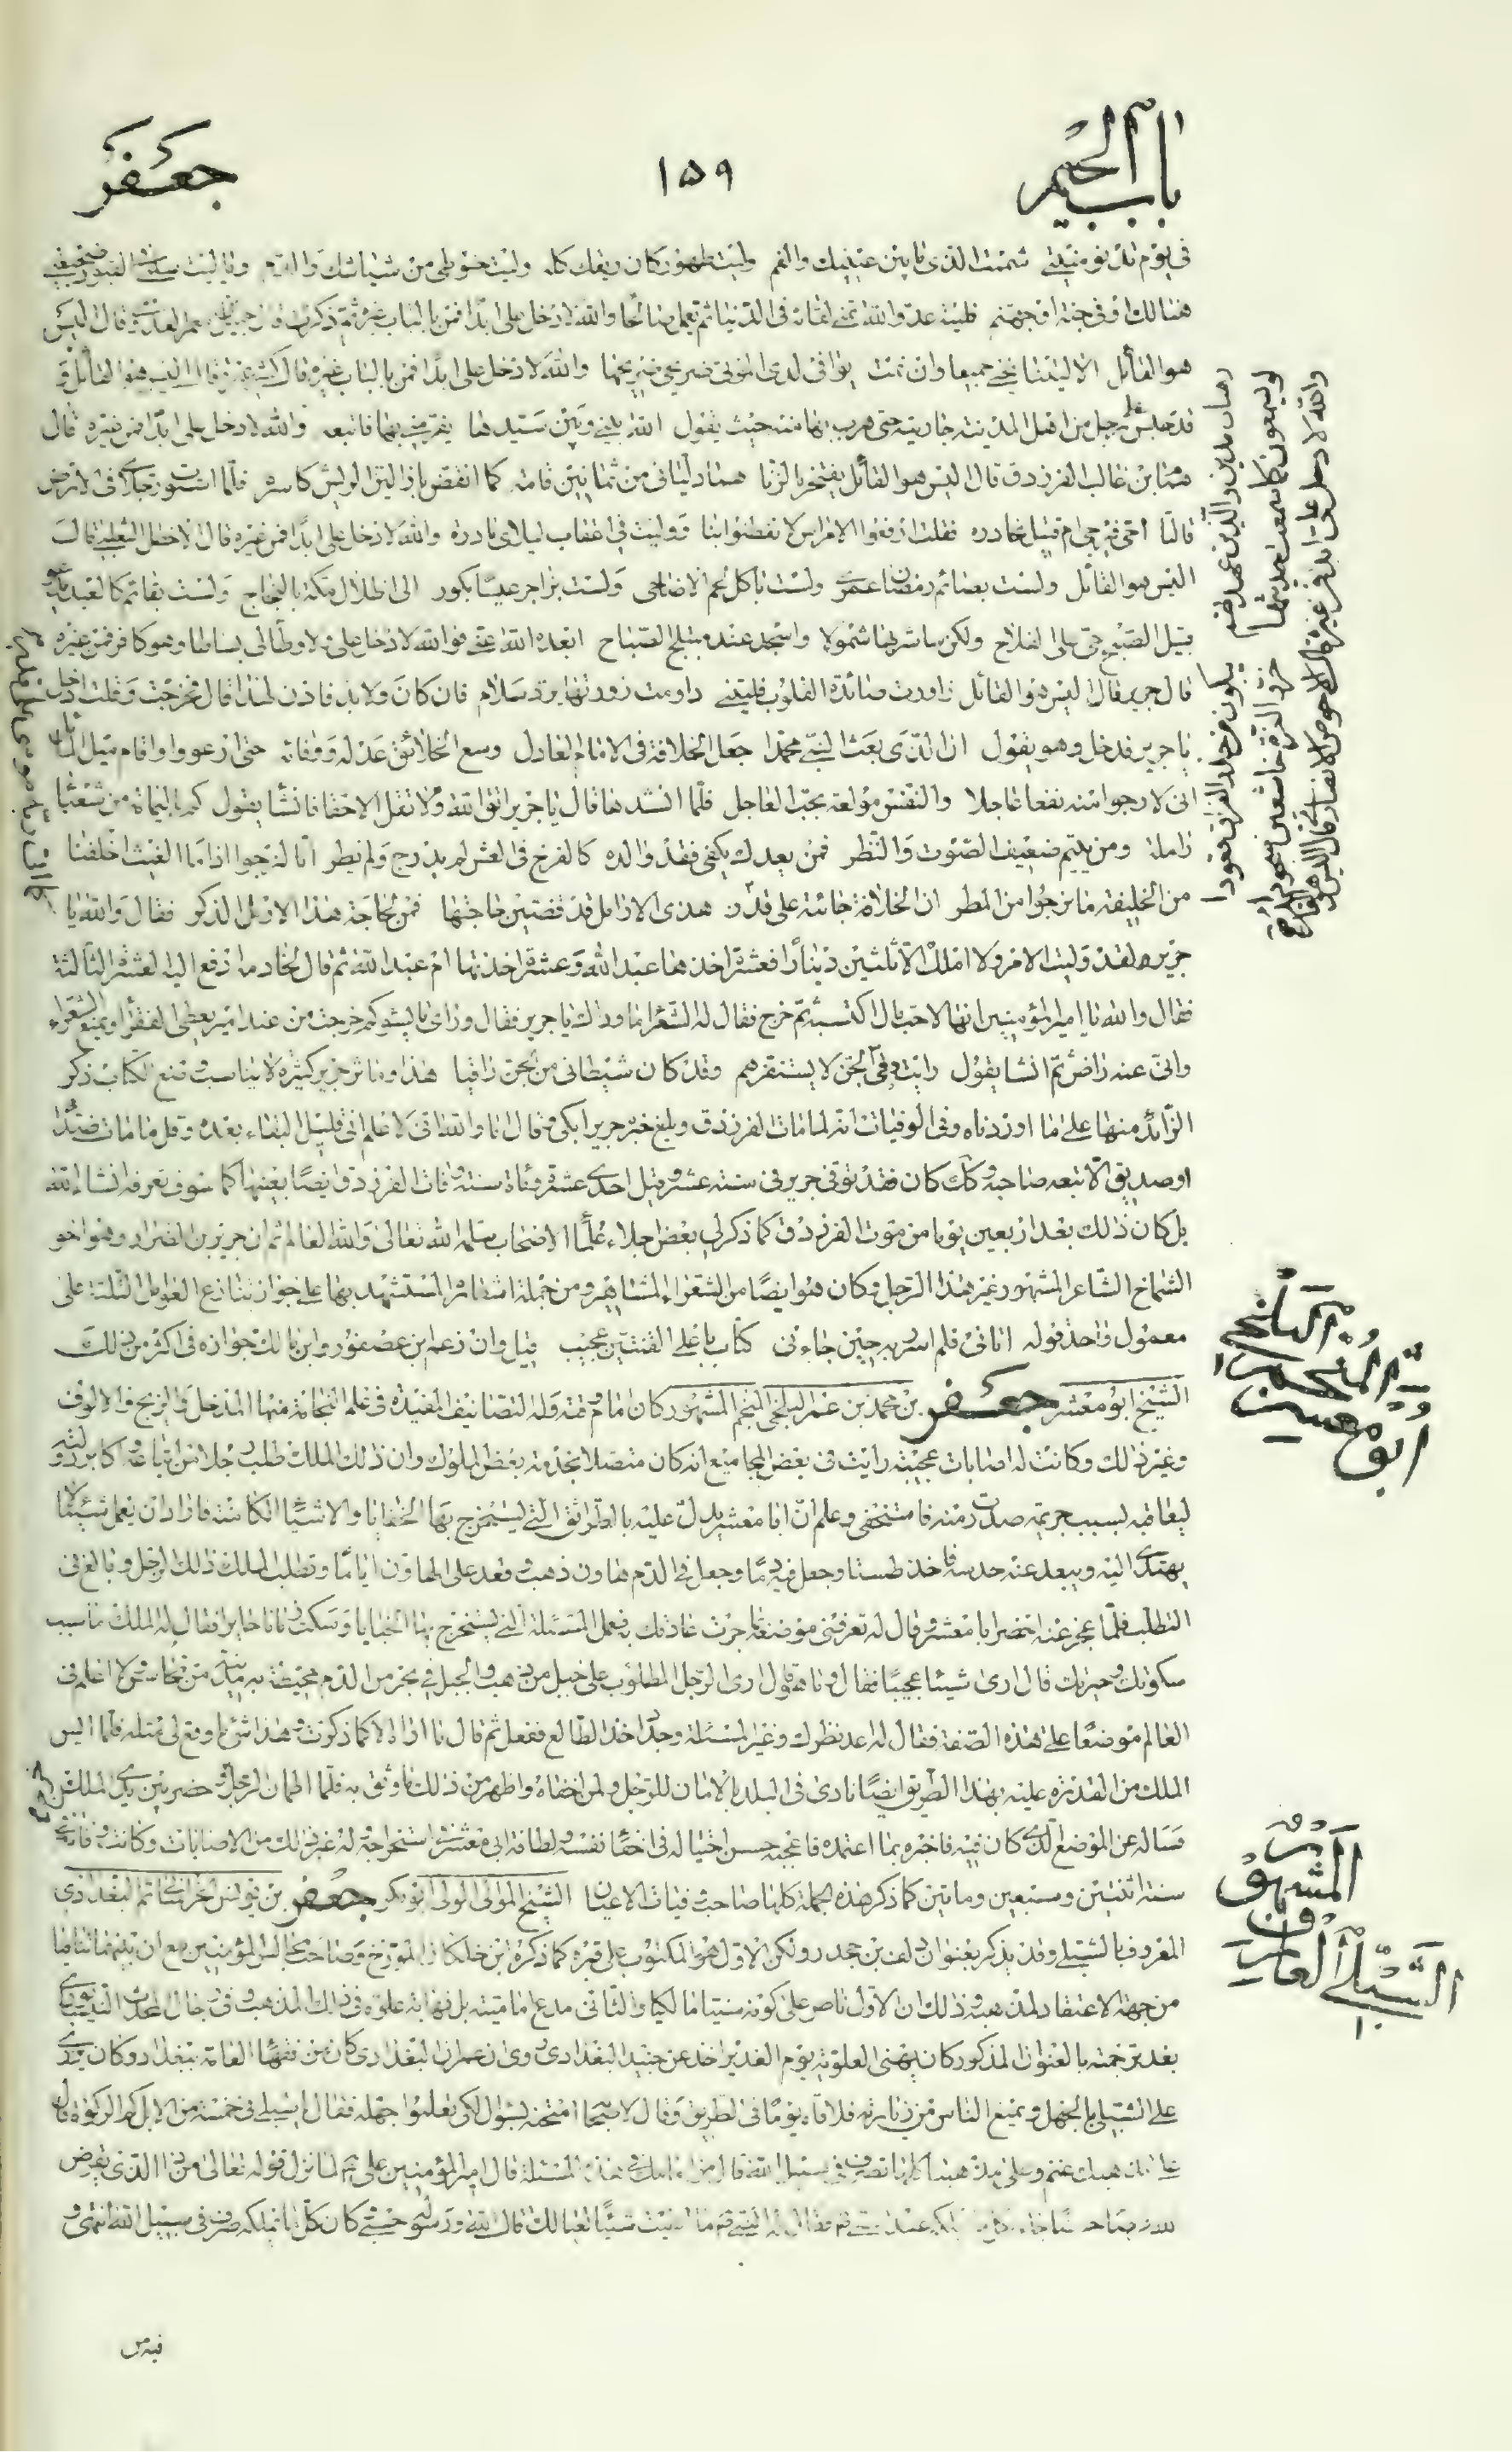 باب الجيم
١٥٩
جعفر
فى يوم تدنو منيتى شممت الذى ما بين عينيك والفم وليت طهورى كان ريقك كله وليت حنوطى من مشاشك والدم ويا ليت سلمى فى القبور ضجيعتى
هنالك او فى جنة او جهنم فليته عدو الله تمنى لقائها فى الدنيا ثم يعمل صالحا والله لا دخل على ابدا فمن بالباب غير من ذكرت قال جميل بن معمر العذرى قال اليس
هو القائل الا ليتنا نحيى جميعا وان نمت يوافى لدى الموتى ضريحى ضريحها والله لا دخل على ابدا فمن بالباب غيره قال كثير عزة قال اليس هو القائل
رهبان مدين والذين عهدتهم يبكون من حذر الفراق قعودا
لو يسمعون كما سمعت حديثها خروا لعزة خاشعين سجودا
والله لا دخل على ابدا فمن غيره قال الاحوص الانصارى قال اليس هو القائل و
قد افسد على رجل من اهل المدينة جاريته حتى هرب بها منه حيث يقول الله بينى وبين سيدها يفر منى بها فاتبعه والله لا دخل على ابدا فمن غيره قال
همام بن غالب الفرزدق قال اليس هو القائل يفتخر بالزنا هما دليانى من ثمانين قامة كما انقض باز اليق الريش كاسره فلما استوت رجلاى فى الارض
قالتا احى فيرجى ام قتيل نحاذره فقلت ارفعوا الامراس لا يفطنوا بنا ووليت فى اعقاب ليل ابادره والله لا دخل على ابدا فمن غيره قال الاخطل التغلبى قال
اليس هو القائل ولست بصائم رمضان عمرى ولست باكل لحم الاضاحى ولست بزاجر عيسا بكور الى اطلال مكة بالنجاح ولست بقائم كالعبد يدعو
قبيل الصبح حى على الفلاح ولكن ساشربها شمولا واسجد عند منبلج الصباح ابعده الله عنى فوالله لا دخل على ولا وطأ لى بساطا وهو كافر فمن غيره
قال جرير قال اليس هو القائل
داومت زورتها يرد سلام فان كان ولابد فاذن لهذا قال فخرجت وقلت ادخل
يا جرير فدخل وهو يقول ان الذى بعث النبى محمدا جعل الخلافة فى الامام العادل وسع الخلائق عدله ووفائه حتى ارعووا واقام ميل المائل
انى لارجو منه نفعا عاجلا والنفس مولعة بحب العاجل فلما انشدها قال يا جرير اتق الله ولا تقل الا حقا فانشأ يقول كم باليمامة من شعثا
ارملة ومن يتيم ضعيف الصوت والنظر فمن بعدك يكفى فقد والده كالفرخ فى العش لم يدرج ولم يطر انا لنرجو اذا ما الغيث اخلفنا
من الخليفة ما نرجوا من المطر ان الخلافة جائته على قدر هذى الارامل قد قضيت حاجتها فمن لحاجة هذا الارمل الذكر فقال والله يا
جرير لقد وليت الامر ولا املك الا ثلثين دينارا فعشرة اخذها عبد الله وعشرة اخذتها ام عبد الله ثم قال لخادمه ادفع اليه العشرة الثالثة
فقال والله يا امير المؤمنين انها لاحب مال اكتسبته ثم خرج فقال له الشعراء ما وراك يا جرير فقال وراى ما يسوكم خرجت من عند امير يعطى الفقراء ويمنع الشعراء
وانى عنه راض ثم انشا يقول رايت رقى الجن لا يستفزهم وقد كان شيطانى من الجن راقيا هذا وماثر جرير كثيرة لا يناسب وضع الكتاب ذكر
الزائد منها على ما اوردناه وفى الوفيات انه لما مات الفرزدق وبلغ خبره جريرا بكى وقال اما والله انى لاعلم انى قليل البقاء بعده وقل ما مات ضد
او صديق الا تبعه صاحبه وكك كان فقد توفى جرير فى سنة عشر وقيل احدى عشرة ومائة سنة وفات الفرزدق ايضا بعينها كما سوف تعرفه انشاء الله
بل كان ذلك بعد اربعين يوما من موت الفرزدق كما ذكر لى بعض اجلاء علماء الاصحاب سلمه الله تعالى والله العالم ثم ان جرير بن الضرار وهو اخو
الشماخ الشاعر المشهور غير هذا الرجل وكان هو ايضا من الشعراء المشاهير ومن جملة اشعاره المستشهد بها على جواز تنازع العوامل الثلثة على
معمول واحد قوله اتانى فلم اسرر به حين جاءنى كتاب باعلى القنتين عجيب قيل وان زعم ابن عصفور وابن مالك جوازه فى اكثر من ذلك
ابو معشر المنجم البلخى
الشيخ ابو معشر جعفر بن محمد بن عمر البلخى المنجم المشهور كان امام وقته وله التصانيف المفيدة فى علم النجامة منها المدخل والزيج والالوف
وغير ذلك وكانت له اصابات عجيبة رايت فى بعض المجاميع انه كان متصلا بخدمة بعض الملوك وان ذلك الملك طلب رجلا من اتباعه واكابر دولته
ليعاقبه بسبب جريمة صدرت منه فاستخفى وعلم ان ابا معشر يدل عليه بالطرائق التى يستخرج بها الخفايا والاشياء الكامنة فاراد ان يعمل شيئا لا
يهتدى اليه ويبعد عنه حدسه فاخذ طستا وجعل فيه دما وجعل فى الدم هاون ذهب وقعد على الهاون اياما وتطلب الملك ذلك الرجل وبالغ فى
التطلب فلما عجز عنه احضر ابا معشر وقال له تعرفنى موضعه بما جرت عادتك به فعمل المسئلة التى يستخرج بها الخفايا وسكت زمانا حايرا فقال له الملك ما سبب
سكوتك وحيرتك قال ارى شيئا عجيبا فقال وما هو قال ارى الرجل المطلوب على جبل من ذهب والجبل فى بحر من الدم محيطة به مدينة من نحاس ولا اعلم فى
العالم موضعا على هذه الصفة فقال له اعد نظرك وغير المسئلة وجدد اخذ الطالع ففعل ثم قال ما اراه الا كما ذكرت وهذا شئ ما وقع لى مثله فلما ايس
الملك من القدرة عليه بهذا الطريق ايضا نادى فى البلد بالامان للرجل ولمن اخفاه واظهر من ذلك ما وثق به فلما اطمان الرجل ظهر وحضر بين يدى الملك
فساله عن الموضع الذى كان فيه فاخبره بما اعتمده فاعجبه حسن احتياله فى اخفاء نفسه ولطافة ابى معشر فى استخراجه وله غير ذلك من الاصابات وكانت وفاته فى
سنة اثنتين وسبعين ومايتين كما ذكر هذه الجملة كلها صاحب وفيات الاعيان الشيخ المولى الولى ابو بكر جعفر بن يونس الخراسانى ثم البغدادى
المشهور العارف الشبلى
المعروف بالشبلى وقد يذكر بعنوان دلف بن جحدر ولكن الاول هو المكتوب على قبره كما ذكره ابن خلكان المورخ وصاحب مجالس المؤمنين مع ان بينهما تناقضا
من جهة الاعتقاد لمذهبه وذلك ان الاول ناص على كونه سنيا مالكيا والثانى مدع اماميته بل نهاية علوه فى ذلك المذهب وفى رجال المحدث النيسابورى
بعد ترجمته بالعنوان المذكور كان يهنى العلوية يوم الغدير اخذ عن جنيد البغدادى وروى ان عمران البغدادى كان من فقهاء العامة ببغداد وكان يزرى
على الشبلى بالجهل ويمنع الناس من زيارته فلاقاه يوما فى الطريق وقال لاصحابه امتحنه بسؤال لكى تعلموا جهله فقال يا شبلى فى خمسة من الابل كم الزكوة قال
على مذهبك غنم وعلى مذهبنا كلها تصرف فى سبيل الله قال من امامك فى هذه المسئلة قال امير المؤمنين على لما نزل قوله تعالى من ذا الذى يقرض
الله قرضا حسنا
كان كل ما يملكه صرف فى سبيل الله انتهى و
فيه من